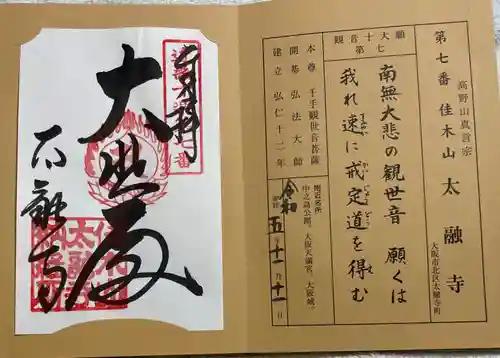 高野山真言宗
第七番 佳木山 太融寺
大阪市北区太融寺町
南無大悲の観世音 願くは
我れ速に戒定道を得む
観音十大願
第七
本尊 千手観世音菩薩
開基 弘法大師
建立 弘仁十二年
附近名所
中之島公園。大阪天満宮。大阪城。
令和五年十一月十一日
大悲殿
太融寺